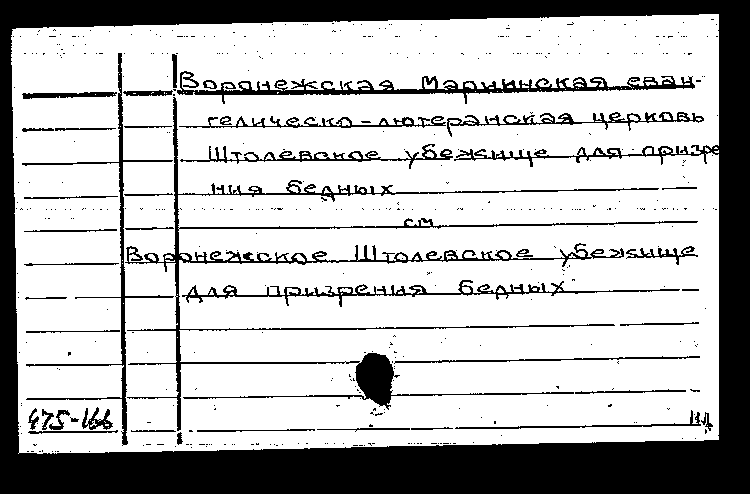 Воронежская Мариинская еван-
гелическо-лютеранская церковь
Штолевское убежище для призре
ния бедных
см.
Воронежское Штолевское убежище
для призрения бедных.
475-166